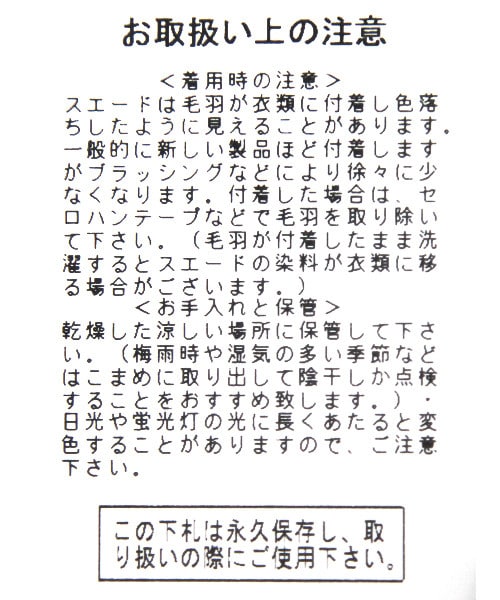 お取扱い上の注意
＜着用時の注意＞
スエードは毛羽が衣類に付着し色落
ちしたように見えることがあります。
一般的に新しい製品ほど付着します
がブラッシングなどにより徐々に少
なくなります。付着した場合は、セ
ロハンテープなどで毛羽を取り除い
て下さい。（毛羽が付着したまま洗
濯するとスエードの染料が衣類に移
る場合がございます。）
＜お手入れと保管＞
乾燥した涼しい場所に保管して下さ
い。（梅雨時や湿気の多い季節など
はこまめに取り出して陰干しか点検
することをおすすめ致します。）・
日光や蛍光灯の光に長くあたると変
色することがありますので、ご注意
下さい。
この下札は永久保存し、取
り扱いの際にご使用下さい。